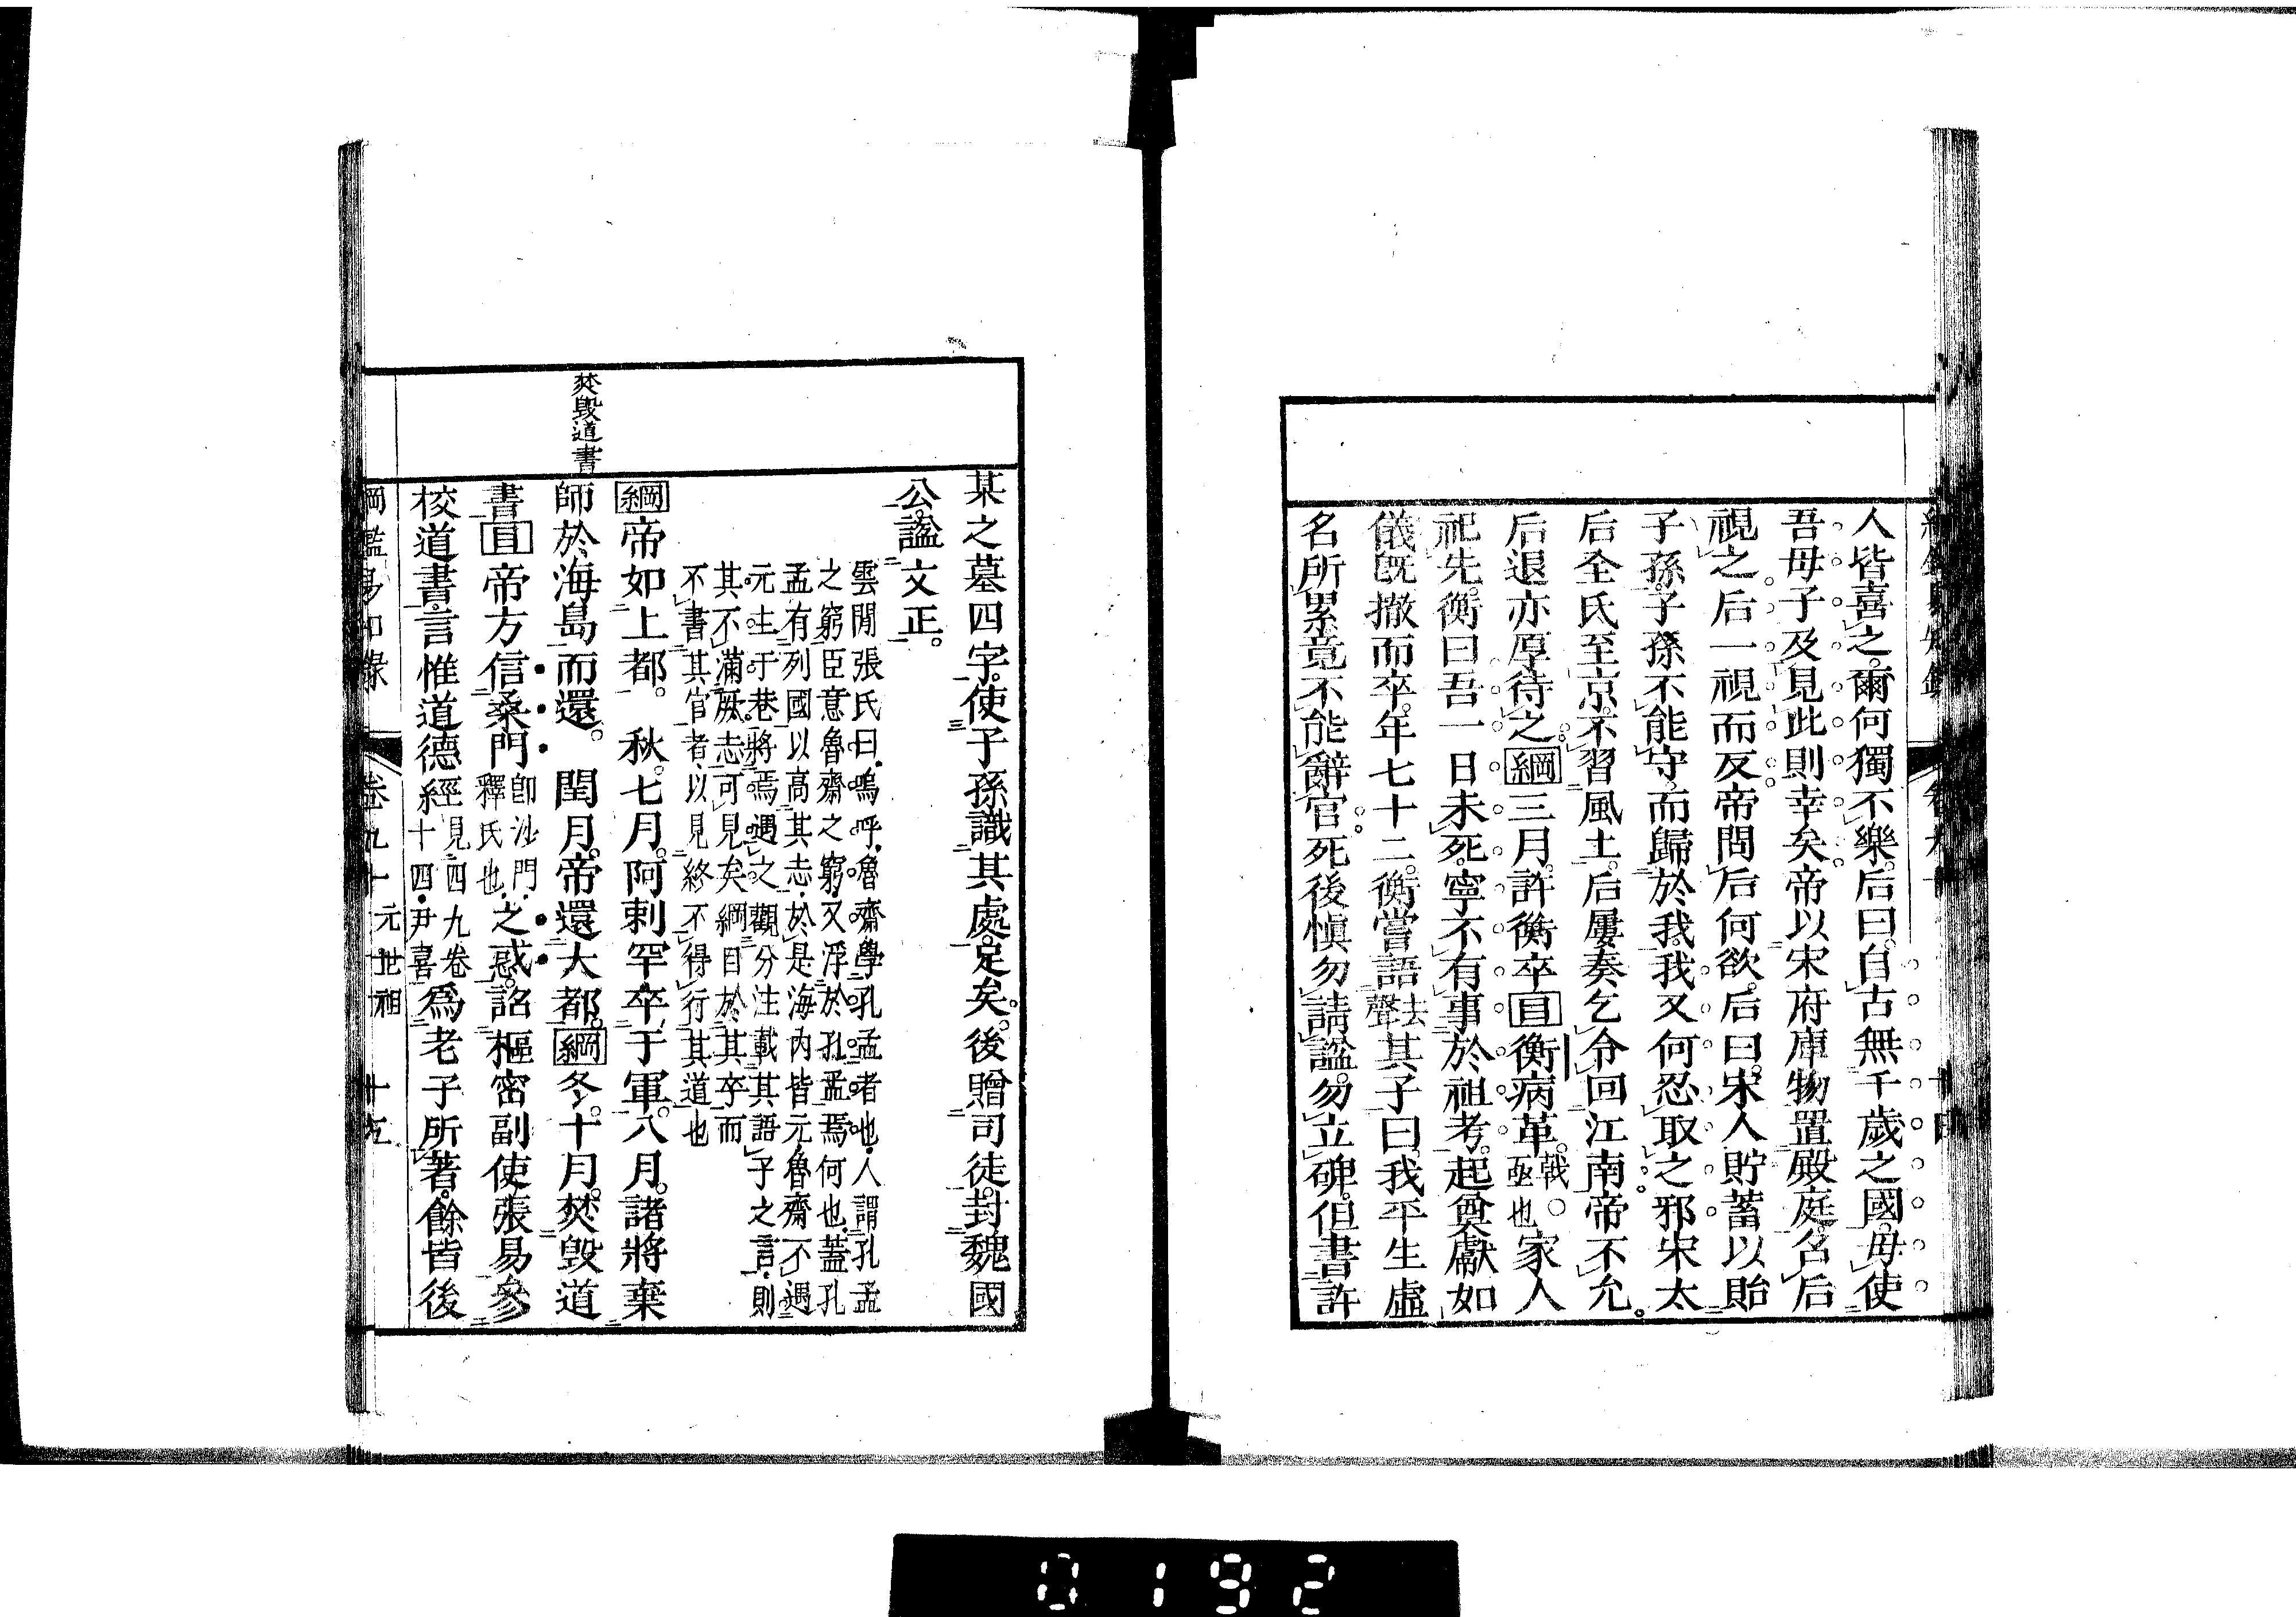 人皆喜之爾何獨不樂后曰自古無千歲之國毋使
吾母子及見此則幸矣帝以宋府庫物置殿庭召后
視之后一視而反帝問后何欲后曰宋人貯蓄以貽
子孫子孫不能守而歸於我我又何忍取之邪宋太
后全氏至京不習風土后屢奏乞令回江南帝不允
后退亦厚待之綱三月許衡卒目衡病革戟亟也家人
祀先衡曰吾一日未死寧不有事於祖考起奠獻如
儀既撤而卒年七十二衡嘗語去聲其子曰我平生虛
名所累竟不能辭官死後愼勿請謚勿立碑但書許
某之墓四字使子孫識其處足矣後贈司徒封魏國
公謚文正
雲間張氏曰嗚呼魯齋學孔孟者也人謂孔孟
之窮臣意魯齋之窮又浮於孔孟焉何也蓋孔
孟有列國以高其志於是海內皆元魯齋不遇
元主于巷將焉遇之觀分注載其語子之言則
其不滿厥志可見矣綱目於其卒而
不書其官者以見終不得行其道也
綱帝如上都秋七月阿剌罕卒于軍八月諸將棄
焚毀道書
師於海島而還閏月帝還大都綱冬十月焚毀道
書目帝方信桑門卽沙門釋氏也之惑詔樞密副使張易參
校道書言惟道德經見四九卷十四尹喜爲老子所著餘皆後
綱鑑易知錄 卷九十 元世祖 十五